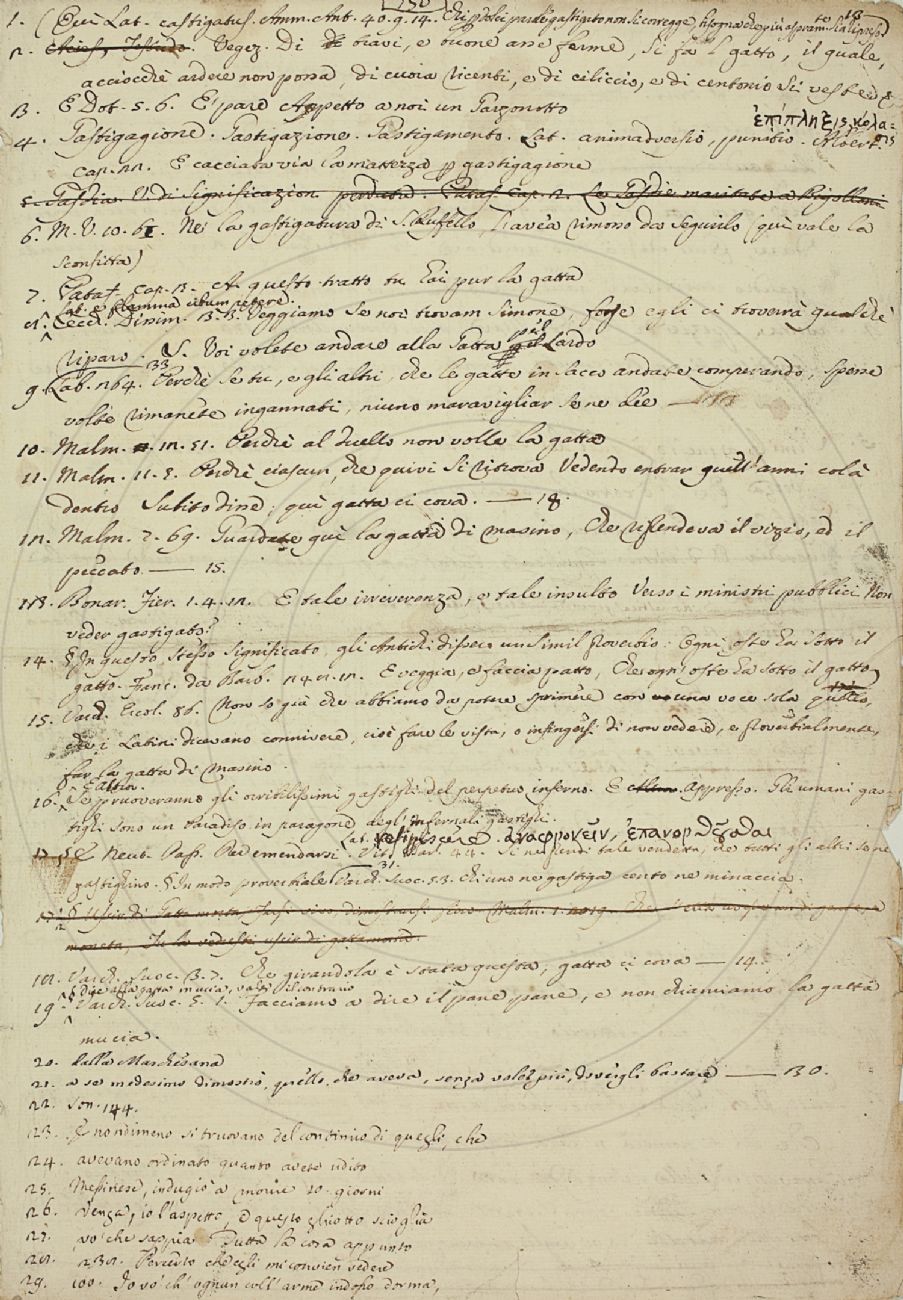 1. (Qui Lat. castigatus. Amm. Ant. 40. 9. 14. Chi p dolci parole gastigato non si corregge, bisogna che più aspramte sia ripreso.
2. Vegez. Di travi, e buone asse ferme, si fa il gatto, il quale,
acciocchè ardere non possa, di cuoia ricenti, e di ciliccio, e di centonio si veste
3. E Dot. 5. 6. E' pare Appetto a noi un Garzonotto
ἐπίπληξις, κόλα=
σις
4. Gastigagione. Gastigazione. Gastigamento. Lat. animadversio, punitio. Albert.
cap. 22. E cacciata via la mattezza p gastigagione
5. Gaffia. V. di Significazion. perduta. Pataf. Cap. 2. Le Gaffie maritate a Rigolloni
6. M. V. 10. 61. Nè la gastigatura di S. Ruffello, l'avea rimono da seguilo (quì vale la
sconfitta)
7. Pataf. cap. 3. A questo tratto tu hai pur la gatta
Lat. e flamma cibum petere.
8. Cecch. Dissim. 3. 3. Veggiamo se noi troviam Simone, forse egli ci troverrà qualche
riparo. §. Voi volete andare alla Gatta pel Lardo
9. Lab. 264. 33 Perchè se tu, e gli altri, che le gatte in sacco andate comperando, spesse
volte rimanete ingannati, niuno maravigliar se ne dee
10. Malm. 12. 51. Perchè al duello non volle la gatta
11. Malm. 11. 5. Perchè ciascun, che quivi si ritrova Vedendo entrar quell'armi colà
dentro Subito dine; quì gatta ci cova. — 18.
12. Malm. 7. 69. Guardate quì la gatta di masino, Che riprendeva il vizio, ed il
peccato — 15.
13. Bonar. Fier. 1. 4. 12. E tale irreverenza, e tale insulto Verso i ministri pubblici Non
veder gastigato?
14. § In questo stesso significato, gli Antichi dissero un simil proverbio: Ogni oste ha sotto il
gatto. Franc. da Barb. 242. 12. E veggia, e faccia patto, Che ogn'oste ha sotto il gatto
15. Varch. Ercol. 86. Non so già che abbiamo da potere sprimere con una voce sola quello,
che i Latini dicevano connivere, cioè fare le viste, o infingersi di non vedere, e proverbialmente,
far la gatta di masino.
E altrov.
16. Se pruoveranno gli orribilissimi gastighi del perpetuo inferno. E Appresso. Gli umani gas-
tighi sono un Paradiso in paragone degl'infernali gastighi.
Lat. resipiscere. ἀναφρονεῖν, ἐπανορθοῦσθαι
17. § E Neut. Pass. Per emendarsi. 44. Si ne prendi tale vendetta, che tutti gli altri se ne
gastighino. § In modo proverbiale Varch. Suoc. 5. 3. Chi uno ne gastiga cento ne minaccia.
moneta, Tu la vedresti uscir di gattamorta.
18. Varch. Suoc. 3. 7. Che girandola è stata questa; gatta ci cova — 14.
§ dire alla gatta mucia, vale il contrario
19. Varch. Suoc. 5. 1. Facciamo a dire il pane pane, e non chiamiamo la gatta
mucia.
20. dalla Marchesana
21. a se medesimo dimostrò, quello, che aveva, senza voler più, dovergli bastare — 30.
22. Son. 144.
23. E nondimeno si truovano del continuo di quegli, che
24. avevano ordinato quanto avete udito
25. Messinese, indugiò a morire 10. giorni
26. Venga, io l'aspetto, è questo ghiotto scioglia
27. vo' che sappia Tutta la cosa appunto
28. 232. Perciò che egli mi convien vedere
29. 100. Io vo' ch'ognun coll'arme indosso dorma,